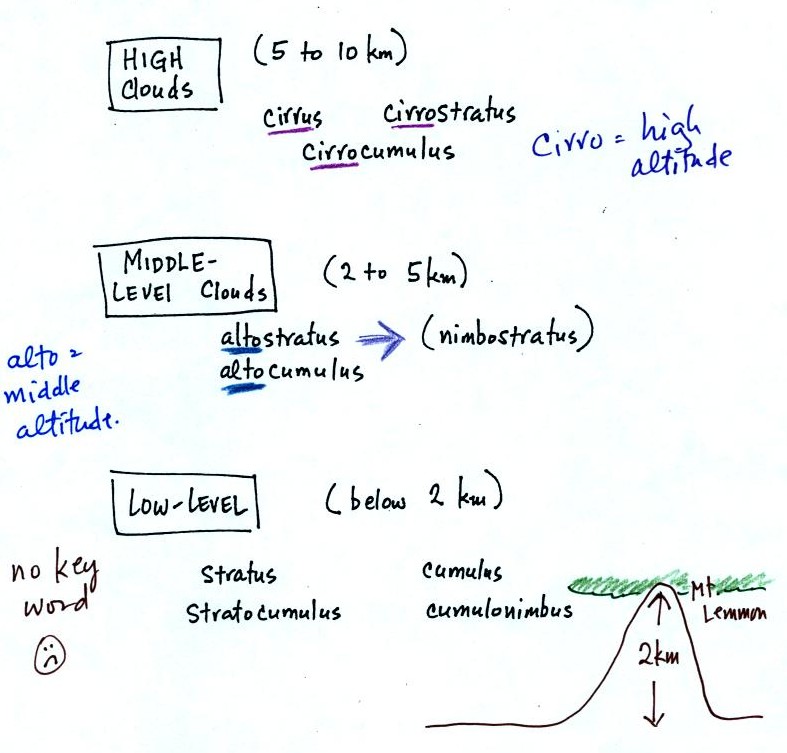 HIGH (5 to 10 km)
Clouds
cirrus cirrostratus
cirrocumulus
Cirro = high
altitude
MIDDLE- (2 to 5 km)
LEVEL Clouds
altostratus → (nimbostratus)
altocumulus
alto =
middle
altitude.
LOW-LEVEL (below 2 km)
no key
word
Stratus cumulus
Stratocumulus cumulonimbus
Mt.
Lemmon
2 km